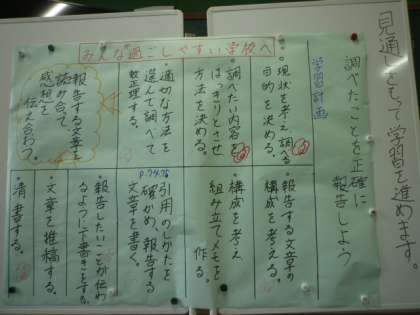 見通しをもって学習を進めます。
みんな過ごしやすい学校へ
調べたことを正確に
報告しよう
学習計画
・現状を考え、調べる
目的を決める。
・調べたい内容を
はっきりとさせ
方法を決める。
・適切な方法を
選んで調べて
整理する。
報告する文章を
読み合って
感想を
伝え合おう
・報告する文章の
構成を考える。
・構成を考え
組み立てメモを
作る。
P.74.75
引用のしかたを
確かめ、報告する
文章を書く。
・報告したいことが伝わ
るように下書きをする。
・文章を推稿する。
・清書する。